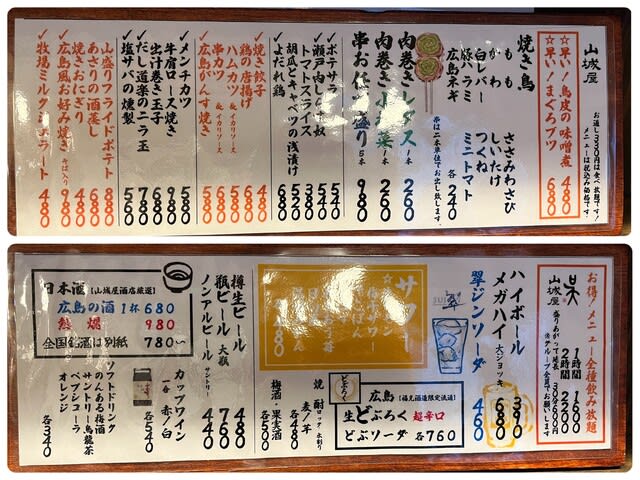 山城屋
お通し330円は食べ放題です!
メニューは税込み価格です。
☆早い!鳥皮の味噌煮 480
☆早い!まぐろブツ 680
焼き鳥
もも
かわ
白レバー
豚ハラミ
広島ネギ
ささみわさび
しいたけ
つくね
ミニトマト
各240
串は二本単位でお出し致します。
肉巻きレタス 1本 260
肉巻き 260
串お任せ盛り 5本 980
ポテサラ 540
瀬戸肉じゃが 
トマトスライス
胡瓜とキャベツの浅漬け
よだれ鶏 680
焼き餃子 480
鶏の唐揚げ 680
ハムカツ & イカリソース
串カツ & イカリソース
広島がんす焼き
メンチカツ 580
牛肩ロース焼き 980
出汁巻き玉子 680
だし道楽のニラ玉 780
塩サバの燻製 550
山盛りフライドポテト 880
あさりの酒蒸し 680
焼きおにぎり 480
広島風お好み焼き そば入り 980
牧場ミルクジェラート 480
お得!メニュー全種飲み放題
1時間 1600
2時間 2200
盛りあがって延長 30分600円
※グループ全員でお願いします
呉
山城屋
ハイボール 380
メガハイ 大ジョッキ 680
翠ジンソーダ 460
サワー
広島
どぶろく
生どぶろく 超辛口
どぶソーダ 各760
焼酎 ロック 水割り
麦/芋
各480
梅酒・果実酒
各500
樽生ビール 480
瓶ビール 大瓶 760
ノンアルビール サントリー 440
カップワイン
一合 赤/白
各540
日本酒【山城屋酒店厳選】
広島の酒 1杯 680
熱燗 980
全国銘酒は別紙 780〜
ソフトドリンク
りんある梅酒
サントリー烏龍茶
ペプシコーラ
オレンジ
各340